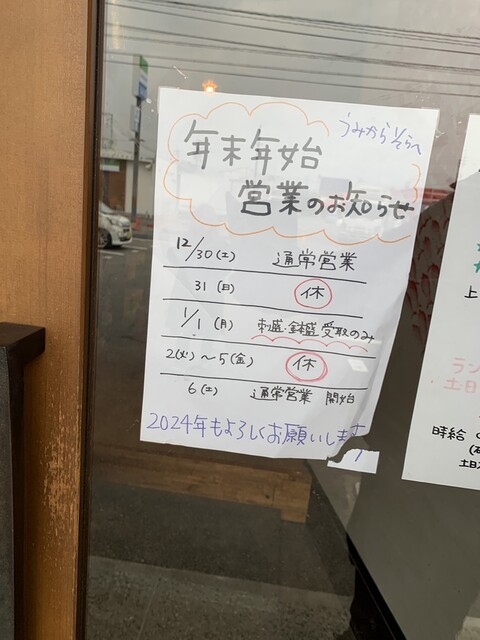 うみからそらへ
年末年始
営業のお知らせ
12/30(土) 通常営業
31(日) 休
1/1(月) 刺盛・鉢盛受取のみ
2(火)～5(金) 休
6(土) 通常営業 開始
2024年もよろしくお願いします
上
ラン
土日
時給
土日